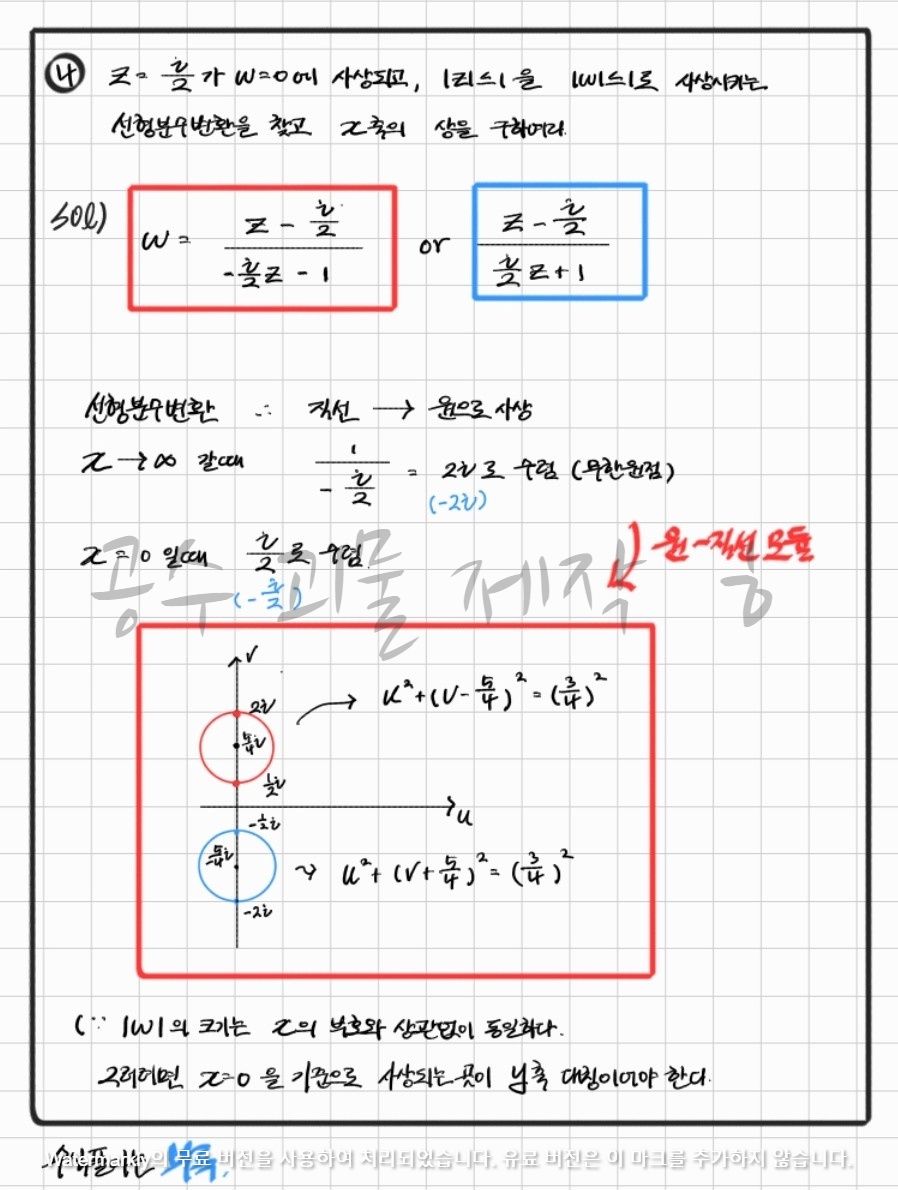 ④ z = i/2 가 w=0에 사상되고, |z|≤1 을 |w|≤1로 사상시키는
선형분수변환을 찾고 x축의 상을 구하여라.
sol)
w = (z - i/2)/(-i/2 z - 1) or (z - i/2)/(i/2 z + 1)
선형분수변환 ∴ 직선 → 원으로 사상
x → ∞ 갈때 1/(-i/2) = 2i로 수렴 (무한원점)
(-2i)
x = 0 일때 i/2로 수렴.
(-i/2)
원~직선 모두
공수괴물 제작
v
2i
u² + (v - 5/4)² = (3/4)²
5/4 i
1/2 i
u
-1/2 i
-5/4 i
u² + (v + 5/4)² = (3/4)²
-2i
(∵ |w|의 크기는 x의 부호와 상관없이 동일하다.
그러려면 x=0 을 기준으로 사상되는 곳이 y축 대칭이어야 한다.
Watermarkly의 무료 버전을 사용하여 처리되었습니다. 유료 버전은 이 마크를 추가하지 않습니다.